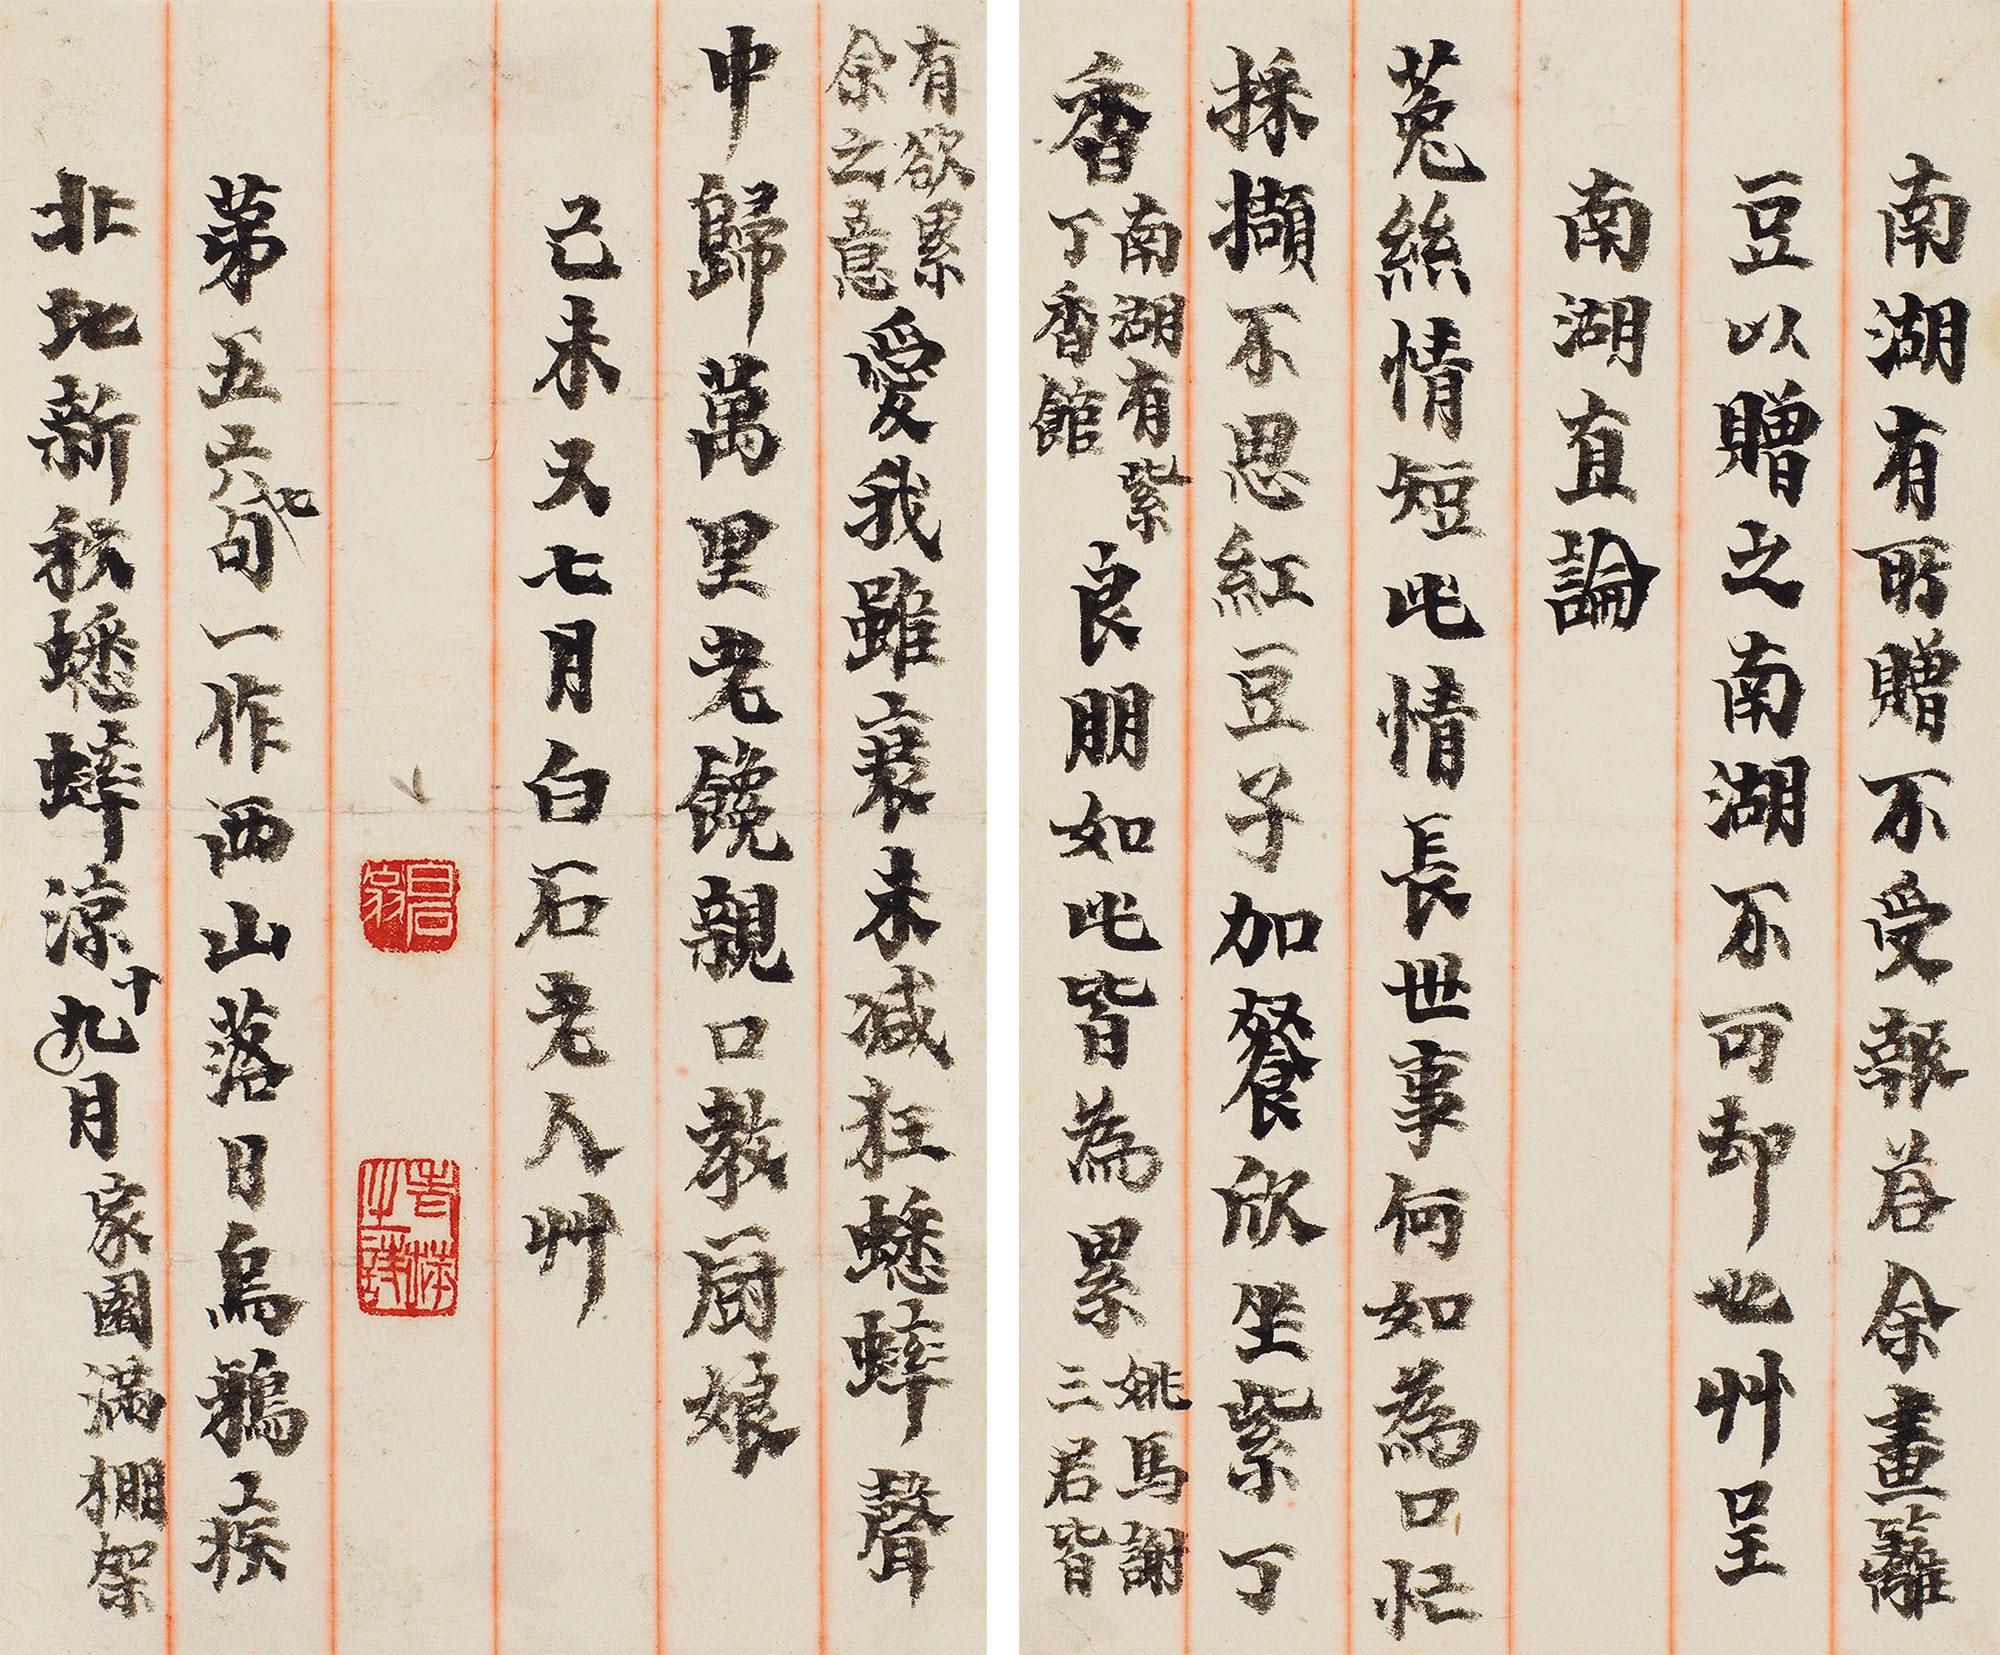 南湖有所贈不受報若余畫籬
豆以贈之南湖不可却也艸呈
南湖直論
菟絲情短此情長世事何如為口忙
採擷不思紅豆子加餐欣坐紫丁
香南湖有紫丁香館良朋如此皆為累姚馬謝三君皆
有欲累余之意愛我雖衰未減狂蟋蟀聲
中歸萬里老饞親口教厨娘
己未又七月白石老人艸
苐五六七句一作西山落日烏鴉疾
北地新秋蟋蟀涼十九月家園滿棚架